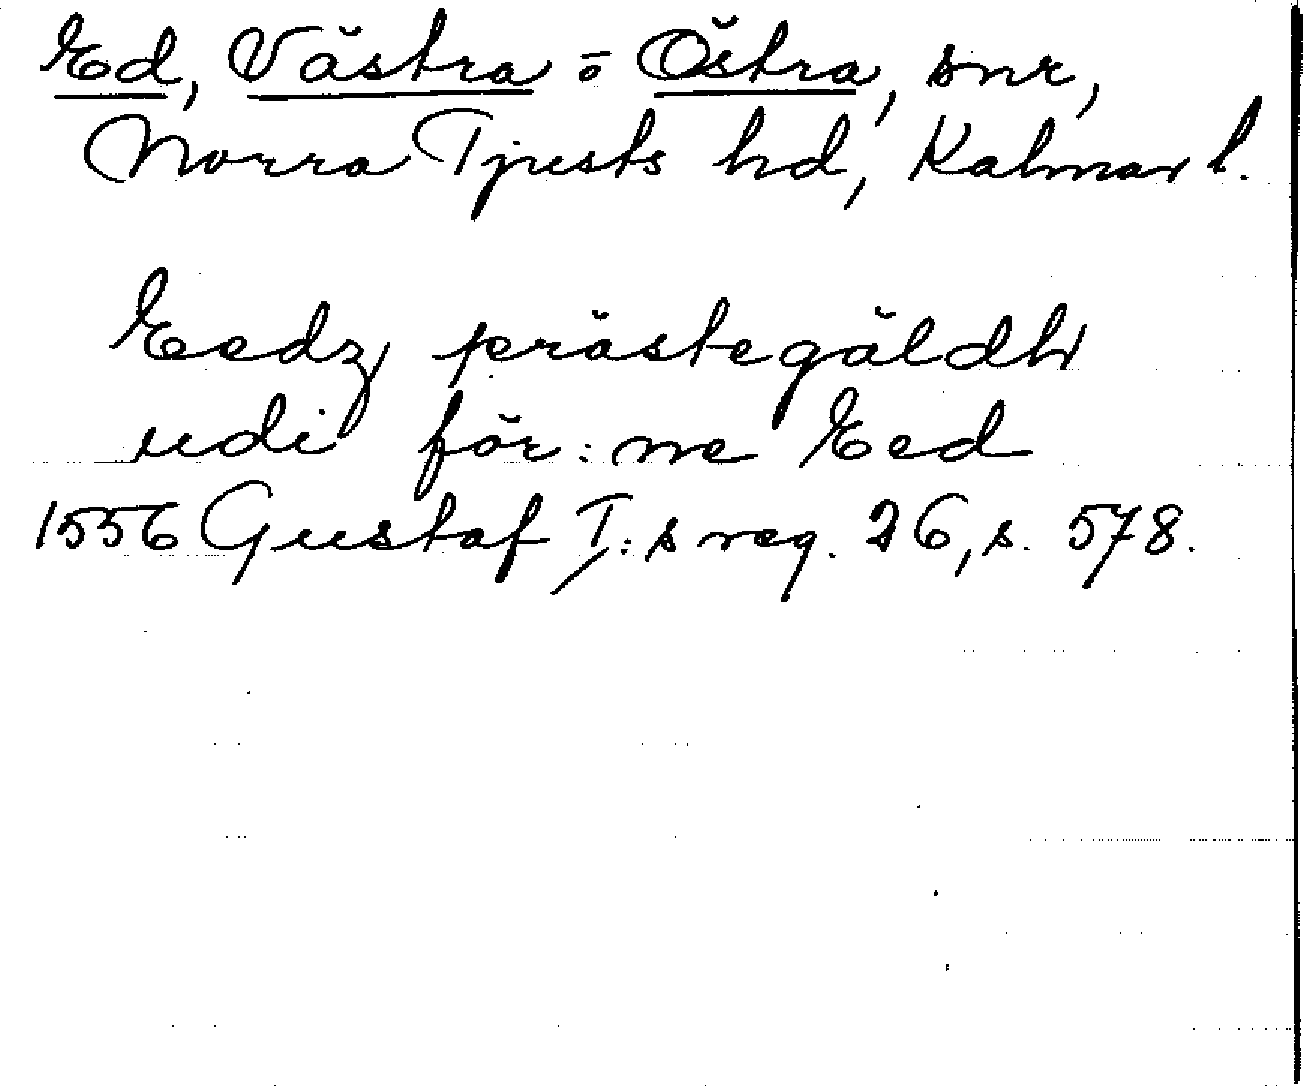 Ed, Västra o Östra, snr,
Norra Tjusts hd, Kalmar l.
Eedz prästegäldh
udi för:ne Eed
1556 Gustaf I:s reg. 26, s. 578.